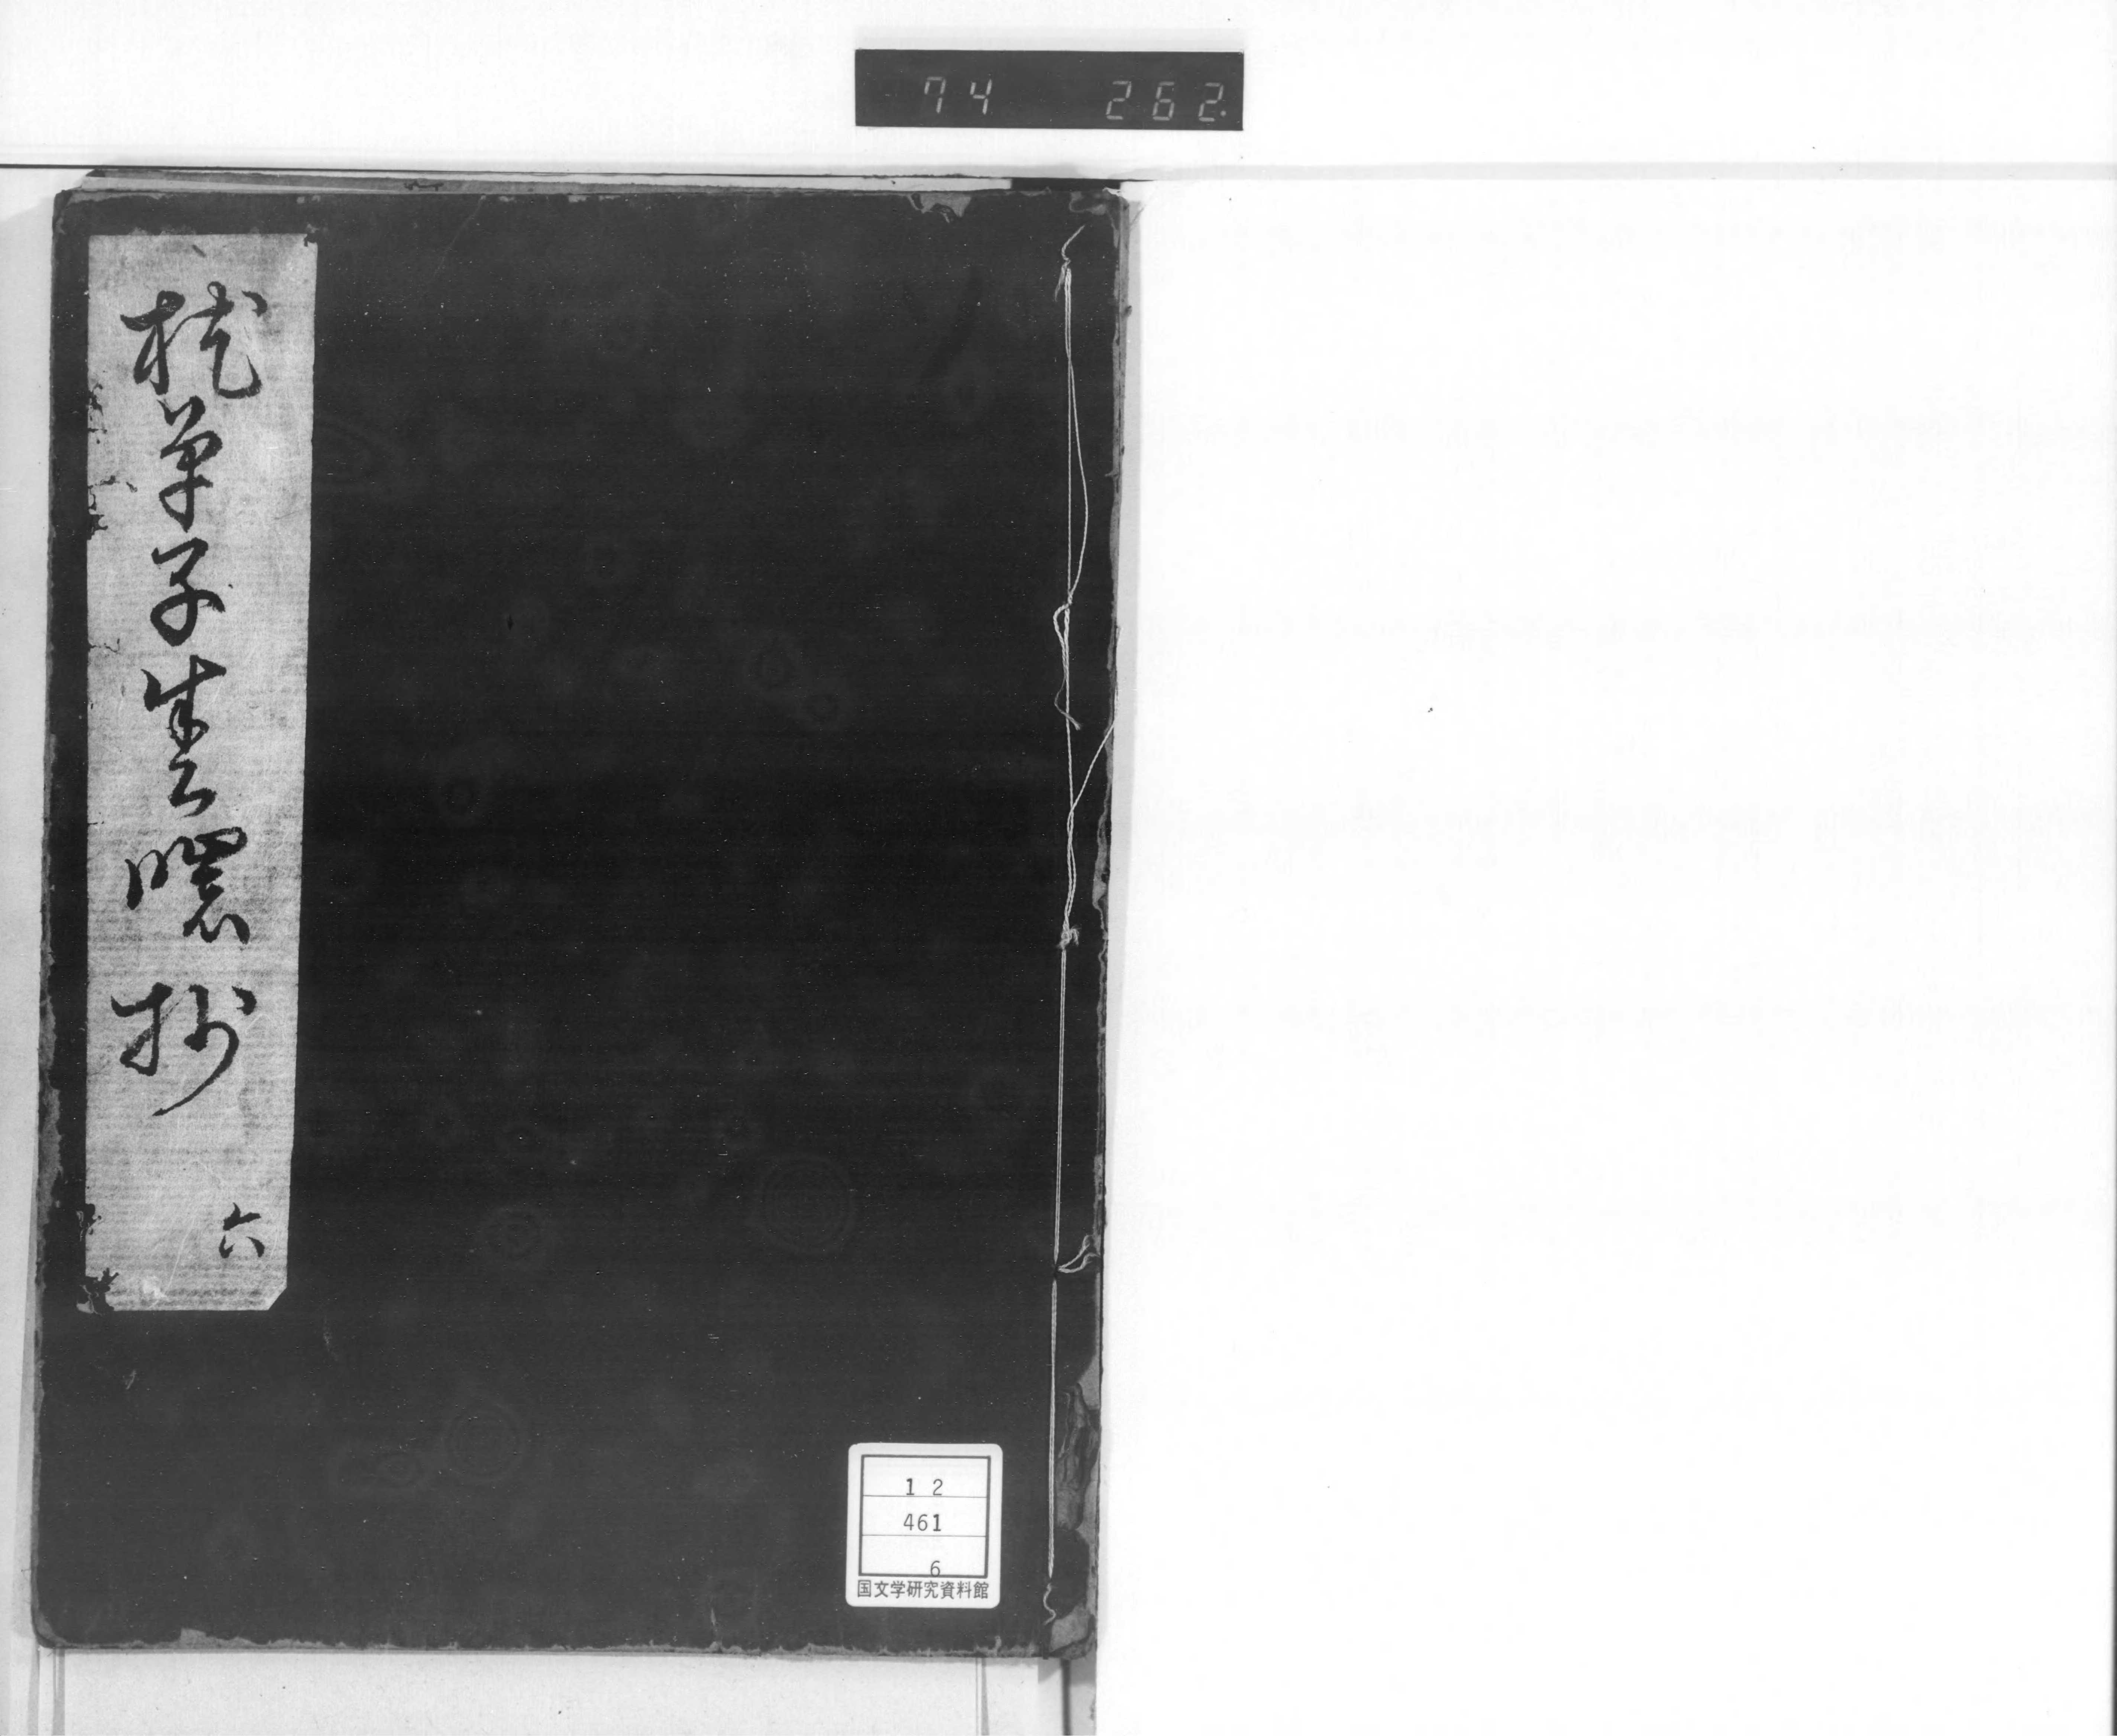 74 262.
枕草子春曙抄
六
12
461
6
国文学研究資料館